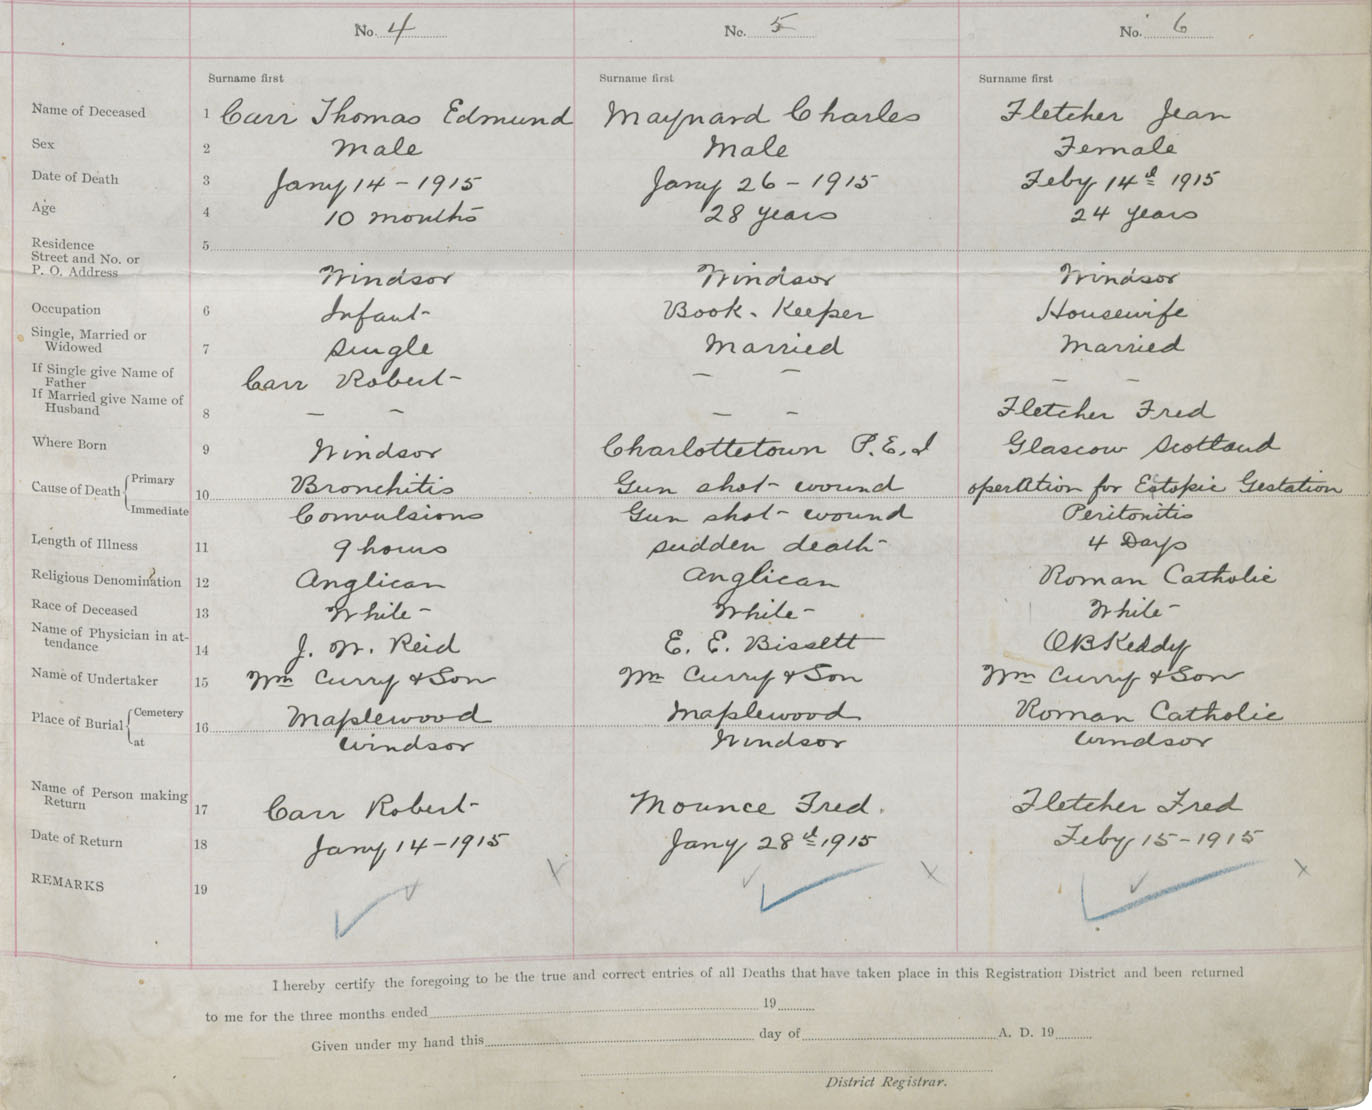 No. 4 No. 5 No. 6
Surname first Surname first Surname first
Name of Deceased 1 Carr Thomas Edmund Maynard Charles Fletcher Jean
Sex 2 Male Male Female
Date of Death 3 Jany 14 - 1915 Jany 26 - 1915 Feby 14th 1915
Age 4 10 months 28 years 24 years
Residence 5
Street and No. or
P. O. Address Windsor Windsor Windsor
Occupation 6 Infant Book-Keeper Housewife
Single, Married or
Widowed 7 Single Married Married
If Single give Name of
Father Carr Robert - - - -
If Married give Name of
Husband 8 - - - - Fletcher Fred
Where Born 9 Windsor Charlottetown P.E.I Glascow Scotland
Cause of Death Primary 10 Bronchitis Gun shot wound operAtion for Ectopic Gestation
Immediate Convulsions Gun shot wound Peritonitis
Length of Illness 11 9 hours sudden death 4 Days
Religious Denomination 12 Anglican Anglican Roman Catholic
Race of Deceased 13 White White White
Name of Physician in at-
tendance 14 J. W. Reid E. E. Bissett OB Keddy
Name of Undertaker 15 Wm Curry & Son Wm Curry & Son Wm Curry & Son
Place of Burial Cemetery 16 Maplewood Maplewood Roman Catholic
at Windsor Windsor Windsor
Name of Person making
Return 17 Carr Robert Mounce Fred. Fletcher Fred
Date of Return 18 Jany 14 - 1915 Jany 28th 1915 Feby 15 - 1915
REMARKS 19
I hereby certify the foregoing to be the true and correct entries of all Deaths that have taken place in this Registration District and been returned
to me for the three months ended 19
Given under my hand this day of A. D. 19
District Registrar.